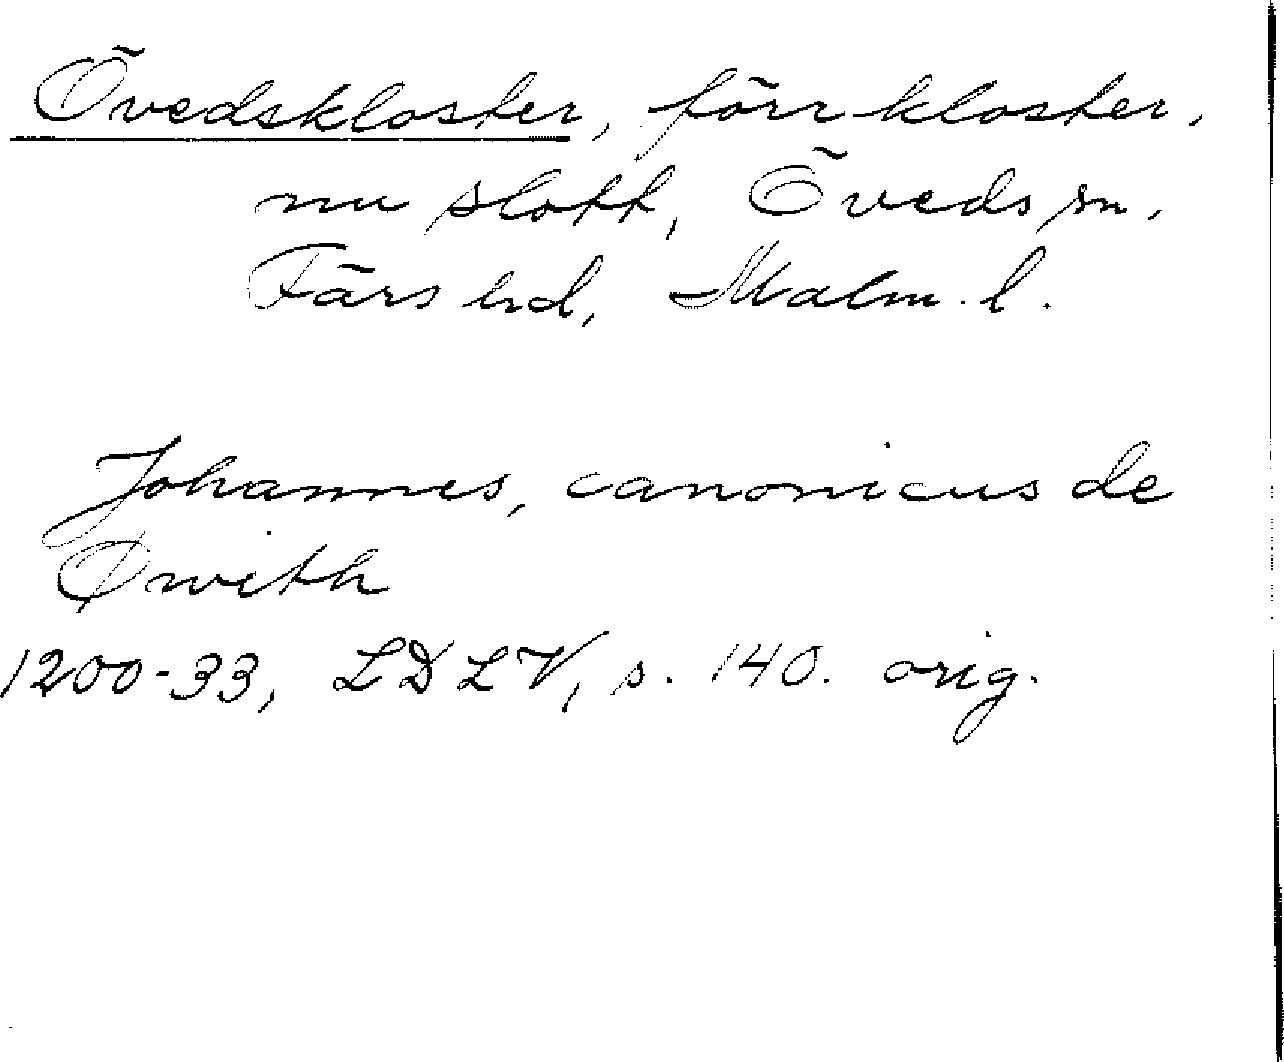 Övedskloster, förr kloster,
nu slott, Öveds sn,
Färs hd, Malm. l.
Johannes, canonicus de
Øwith
1200-33, LDLV, s. 140. orig.